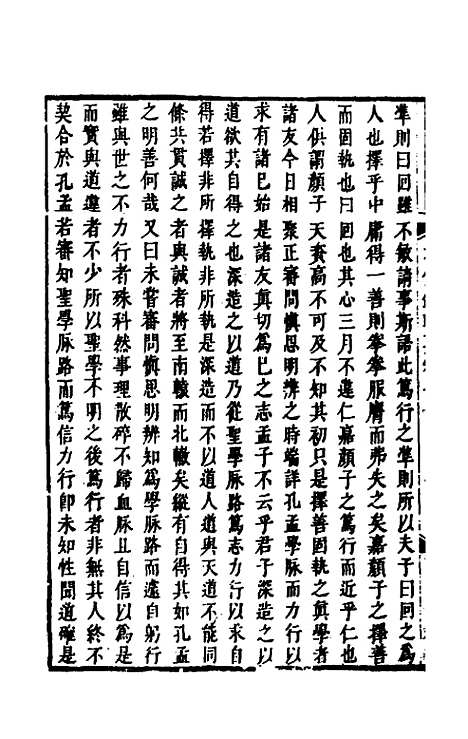 準則曰回雖不敏請事斯語此篤行之準則所以夫子曰回之爲
人也擇乎中庸得一善則拳拳服膺而弗失之矣嘉顏子之擇善
而固執也曰回也其心三月不違仁嘉顏子之篤行而近乎仁也
人俱謂顏子天資高不可及不知其初只是擇善固執之眞學者
諸友今日相聚正審問愼思明辨之時端詳孔孟學脈而力行以
求有諸巳始是諸友眞切爲巳之志孟子不云乎君子深造之以
道欲其自得之也深造之以道乃從聖學脈路篤志力行以求自
得若擇非所執非所執是深造而不以道人道與天道不能同
條共貫誠之者與誠者將至南轅而北轍矣縱有自得其如孔孟
之明善何哉又曰未嘗審問愼思明辨知爲學脈路而遠自躬行
雖與世之不力行者殊科然事理散碎不歸血脈且自信以爲是
而實與道違者不少所以聖學不明之後篤行者非無其人終不
契合於孔孟若審知聖學脈路而篤信力行卽未知性聞道確是